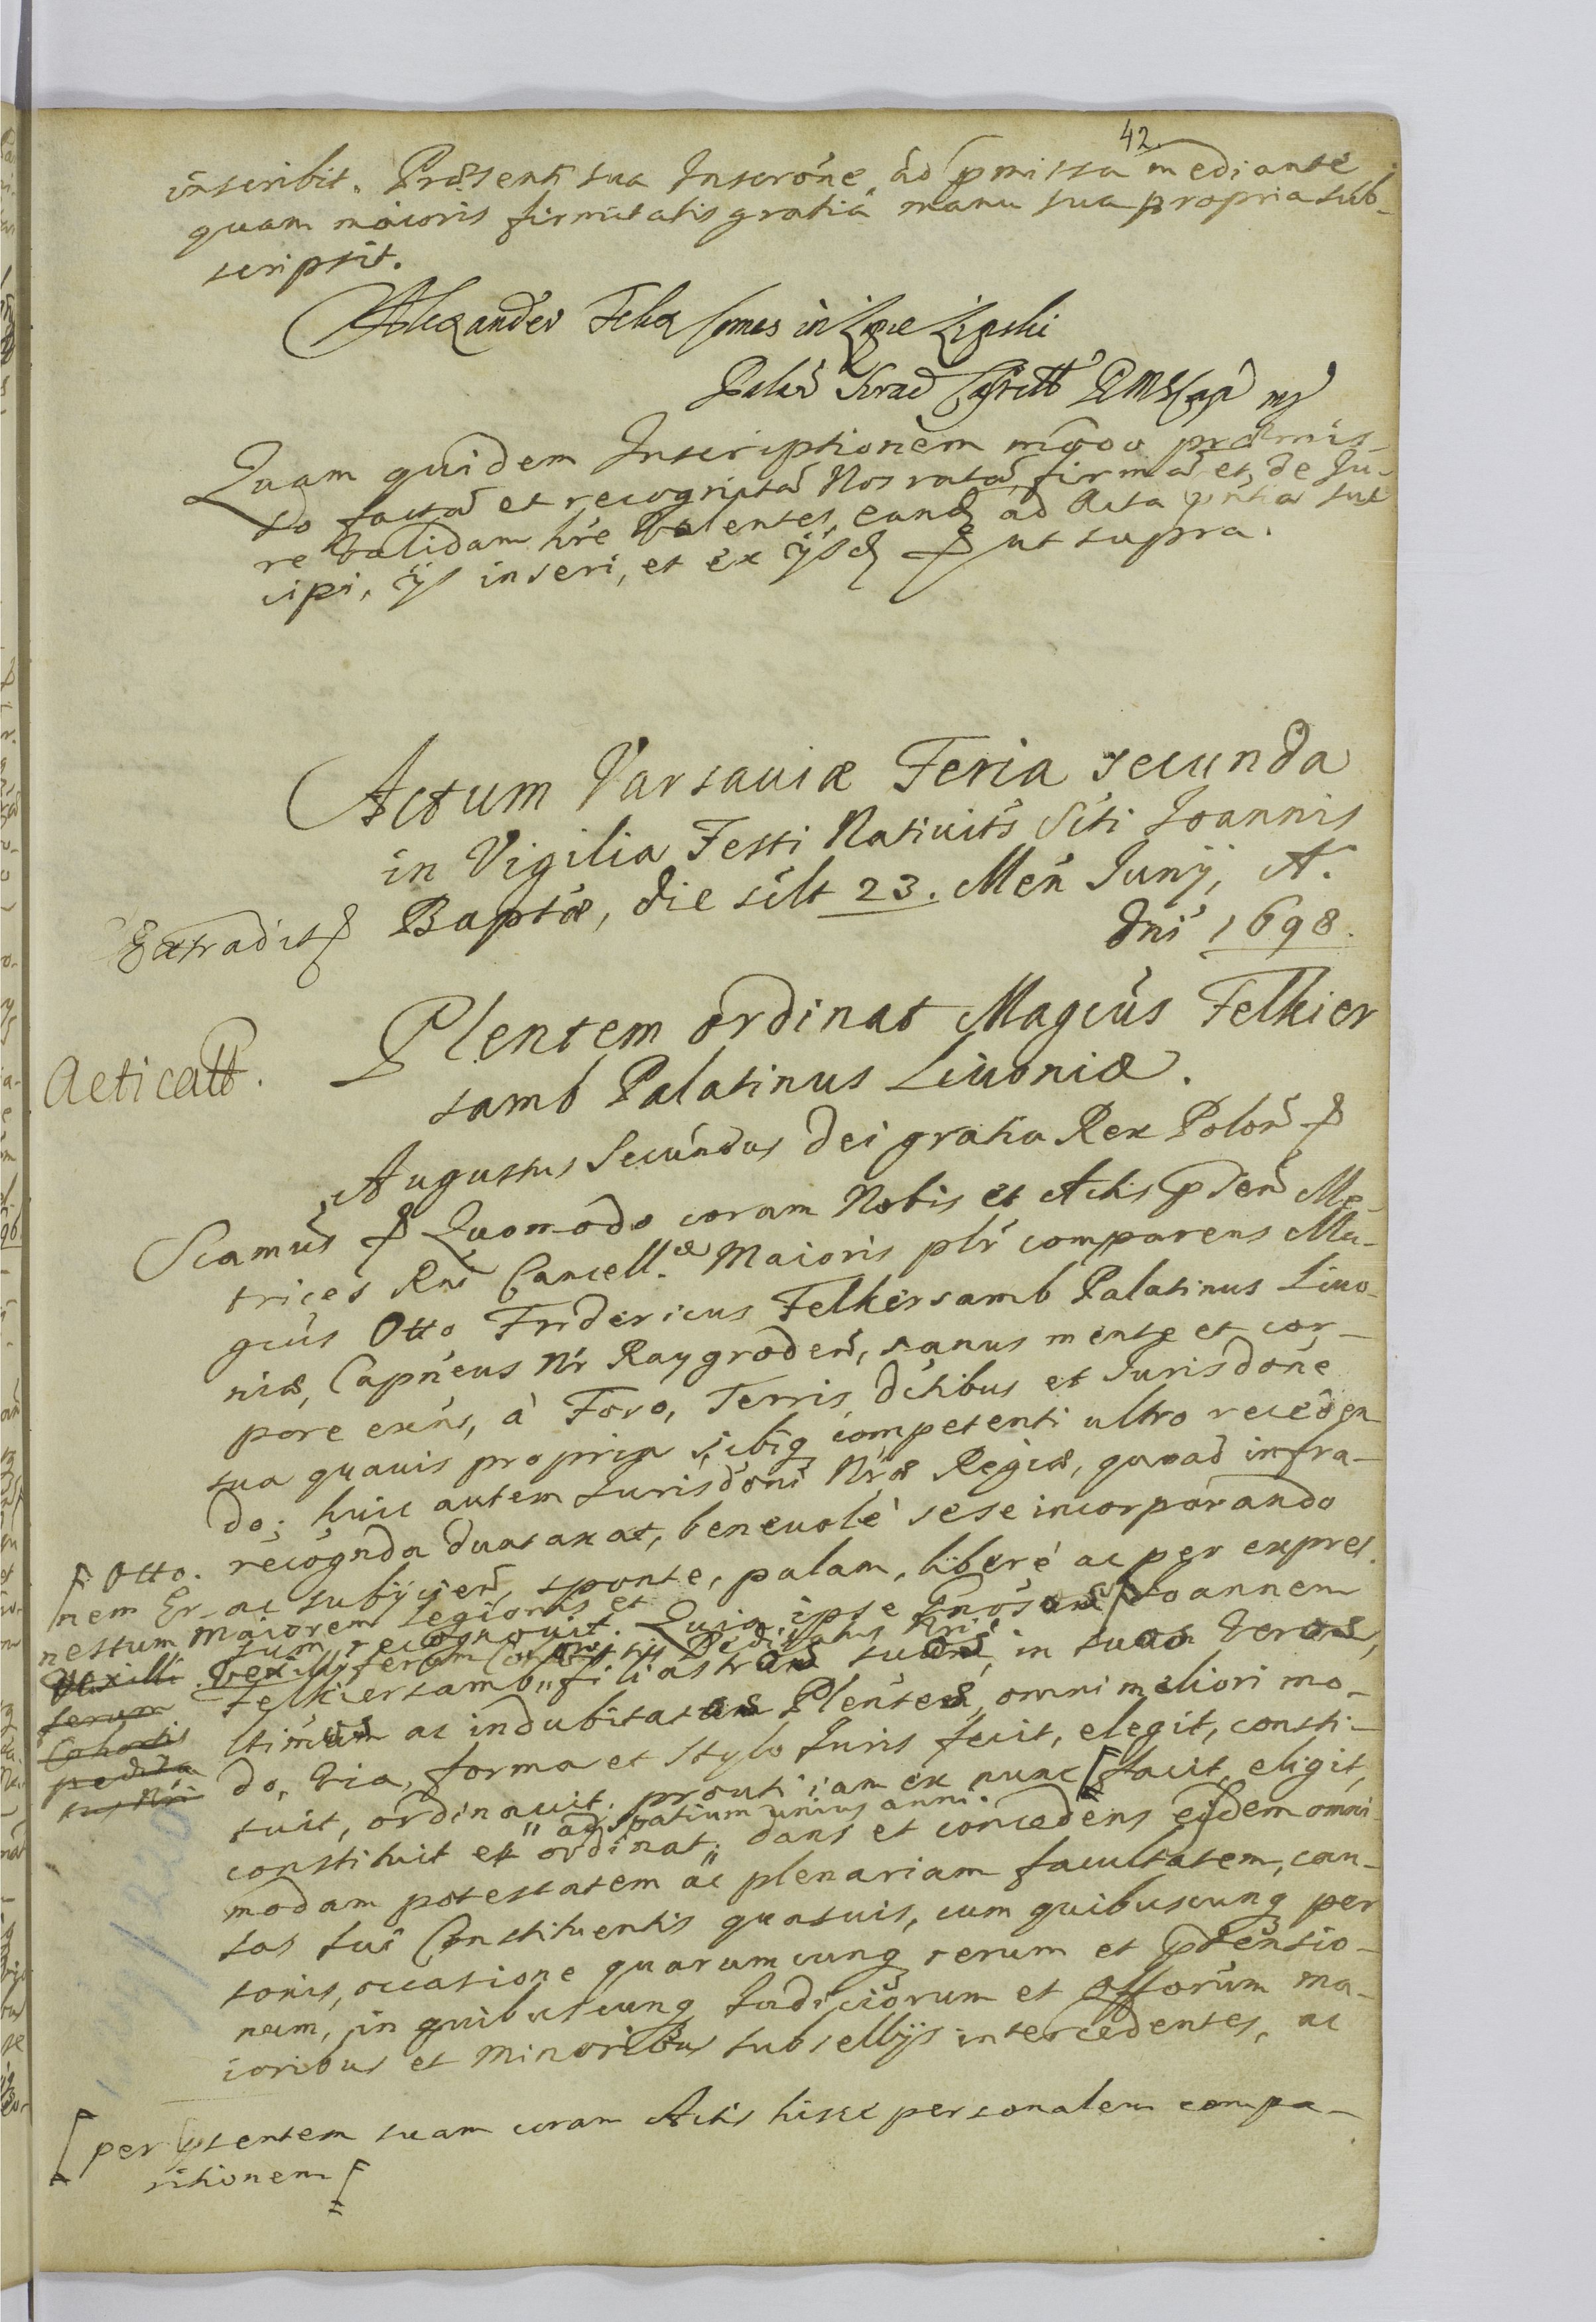 42.
inscribit. Præsenti sua Inscrōne, ad p̄missa mediante
quam maioris firmitatis gratiâ manu sua propria sub-
scripsit.
Alexander Felix Comes in Lipie Lipski
Quam quidem Inscriptionem modo præmis-
so factā et recognitā Nos ratā, firmā et de Ju-
re validam hr̄e volentes, eandq ad Acta p̄ntia sus
cipi, ijs inseri, et ex ijsdq ut supra.
Actum Varsaviæ Feria secunda
in Vigilia Festi Nativit̄s S̄cti Joannis
Bapt̄æ, die scilt 23. Men̄ Junij, A.
Dn̄i 1698.
Extradit
Acticatt.
Plentem ordinat Magcūs Felkier
samb Palatinus Livoniæ.
Augustus Secundus Dei gratia Rex Polon̄
Scamūs Quomodo coram Nobis et Actis p̄sen̄ Me-
trices Rn̄i Cancell.æ Maioris pl̄r comparens Ma-
gcūs Otto Fridericus Felkersamb Palatinus Livo-
niæ, Capn̄eus Nr̄ Raygroden̄, sanus mente et cor-
pore exn̄s, à Foro, Terris, dictibus et Jurisdōne
sua quavis propria sibiq competenti ultro receden
do; huic autem Jurisdōni Nr̄æ Regiæ, quoad infra-
recognda duntaxat, benevolè sese incorporando
ac subijcien̄, sponte, palam, liberè ac per expres.
sum recognovit. Quia ipse Gn̄osum Joannem
Felkiersamb „filiastrum suum, in suum verum,
ltimum ac indubitatum Plen̄tem, omni meliori mo-
do, via, forma et stylo Juris fecit, elegit, consti-
tuit, ordinavit, prout iam ex nunc [facit, eligit,
„ ad spatium unius anni.
constituit et ordinat „ dans et concedens eidem omni-
modam potestatem ac plenariam facultatem, cau-
sas sui Constituentis quasvis, cum quibuscunq per
sonis, occasione quarumcunq rerum et p̄tensio-
num, in quibuscunq Judiciorum et Offorum ma-
ioribus et Minoribus subsellijs intercedentes, ac
Otto.
nem Er-
nestum Maiorem Legionis et
vexilliferum Cohortis Pedita⁠tus Nr̄i
Vexilli
ferum
Cohortis
pedita
tus Nr̄i
[per p̄sentem suam coram Actis hisce personalem compa-
ritionem